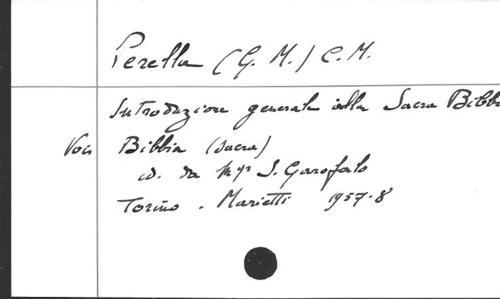 Perella (G. M.) C. M.
Introduzione generale alla Sacra Bibbi
Voci Bibbia (sacra)
ed. da Mgr S. Garofalo
Torino - Marietti 1957-8